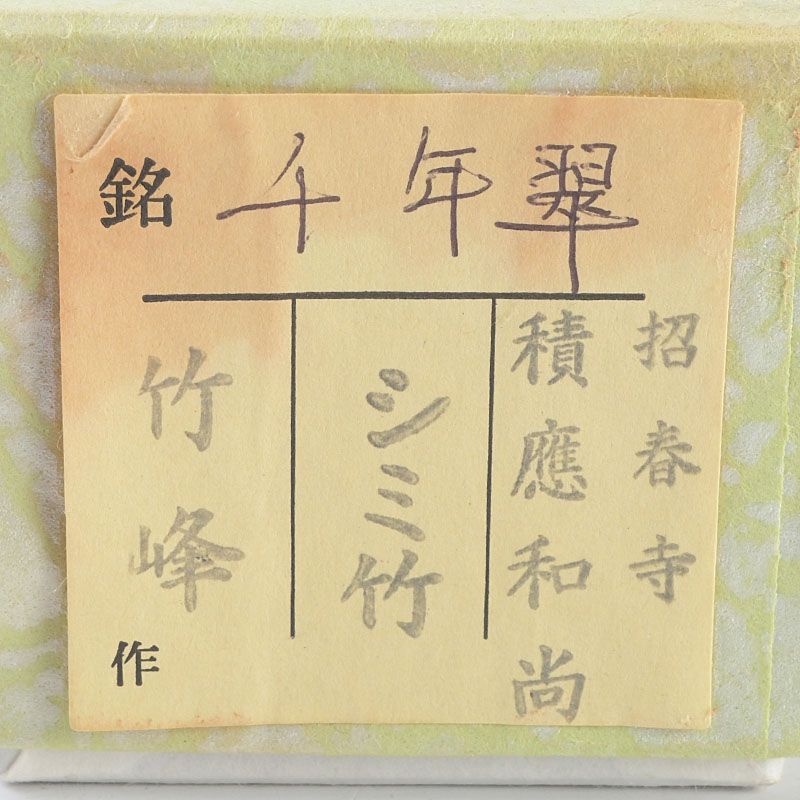 銘 千年翠
招春寺
積應和尚
シミ竹
竹峰
作